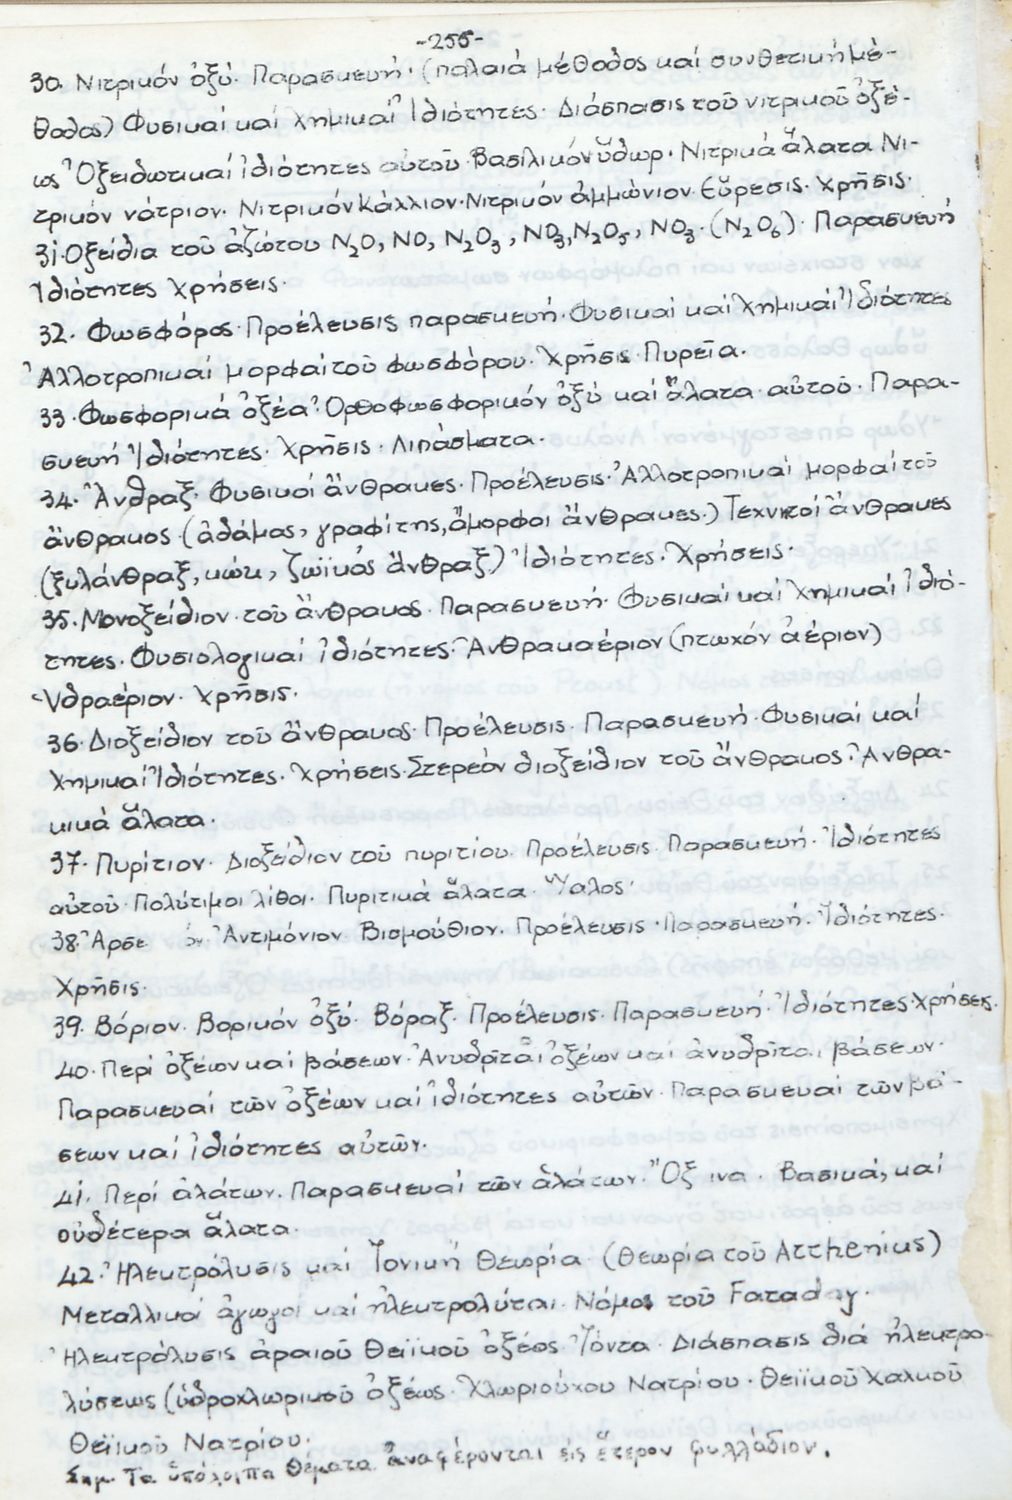 -255-
30. Νιτρικόν ὀξύ. Παρασκευή. (παλαιά μέθοδος καί συνθετική μέ-
θοδος) Φυσικαί καί χημικαί Ἰδιότητες. Διάσπασις τοῦ νιτρικοῦ ὀξέ-
ως Ὀξειδωτικαί ἰδιότητες αὐτοῦ. Βασιλικόν ὕδωρ. Νιτρικά ἅλατα Νι-
τρικόν νάτριον. Νιτρικόν Κάλλιον. Νιτρικόν ἀμμώνιον. Εὕρεσις. Χρῆσις.
31. Οξείδια τοῦ ἀζώτου N2O, NO, N2O3, NO3, N2O5, NO3. (N2O6). Παρασκευή
Ἰδιότητες χρήσεις.
32. Φωσφόρος. Προέλευσις παρασκευή. Φυσικαί καί Χημικαί Ἰδιότητες
Ἀλλοτροπικαί μορφαί τοῦ φωσφόρου. Χρῆσις. Πυρεῖα.
33. Φωσφορικά ὀξέα. Ορθοφωσφορικόν ὀξύ καί ἅλατα αὐτοῦ. Παρα-
σκευή Ἰδιότητες. Χρῆσις. Λιπάσματα.
34. Ἄνθραξ. Φυσικοί ἄνθρακες. Προέλευσις. Ἀλλοτροπικαί μορφαί τοῦ
ἄνθρακος. (ἀδάμας, γραφίτης, ἄμορφοι ἄνθρακες.) Τεχνικοί ἄνθρακες
(ξυλάνθραξ, κώκ, ζωϊκός ἄνθραξ) Ἰδιότητες. Χρήσεις.
35. Μονοξείδιον τοῦ ἄνθρακος. Παρασκευή. Φυσικαί καί Χημικαί Ἰδιό-
τητες. Φυσιολογικαί ἰδιότητες. Ἀνθρακαέριον (πτωχόν ἀέριον)
Ὑδραέριον. Χρῆσις.
36. Διοξείδιον τοῦ ἄνθρακος. Προέλευσις. Παρασκευή. Φυσικαί καί
Χημικαί Ἰδιότητες. Χρήσεις. Στερεόν διοξείδιον τοῦ ἄνθρακος. Ἀνθρα-
κικά ἅλατα.
37. Πυρίτιον. Διοξείδιον τοῦ πυριτίου. Προέλευσις. Παρασκευή. Ἰδιότητες
αὐτοῦ. Πολύτιμοι λίθοι. Πυριτικά ἅλατα. Ὕαλος.
38. Ἀρσε όν Ἀντιμόνιον. Βισμούθιον. Προέλευσις. Παρασκευή. Ἰδιότητες.
Χρῆσις.
39. Βόριον. Βορικόν ὀξύ. Βόραξ. Προέλευσις. Παρασκευή. Ἰδιότητες χρήσεις.
40. Περί ὀξέων καί βάσεων. Ἀνυδρῖται ὀξέων καί ἀνυδρῖται βάσεων.
Παρασκευαί τῶν ὀξέων καί ἰδιότητες αὐτῶν. Παρασκευαί τῶν βά-
σεων καί ἰδιότητες αὐτῶν.
41. Περί ἁλάτων. Παρασκευαί τῶν ἁλάτων. Ὄξ ινα. Βασικά, καί
οὐδέτερα ἅλατα.
42. Ἠλεκτρόλυσις καί Ἰονική Θεωρία. (Θεωρία τοῦ Arrhenius)
Μεταλλικοί ἀγωγοί καί ἠλεκτρολύται. Νόμοι τοῦ Faraday.
Ἠλεκτρόλυσις ἀραιοῦ θειϊκοῦ ὀξέος. Ἰόντα. Διάσπασις διά ἠλεκτρο-
λύσεως (ὑδροχλωρικοῦ ὀξέως. Χλωριούχου Νατρίου. Θειϊκοῦ Χαλκοῦ
Θειϊκοῦ Νατρίου.
Σημ. Τα ὑπόλοιπα θέματα ἀναφέρονται εἰς ἕτερον φυλλάδιον.